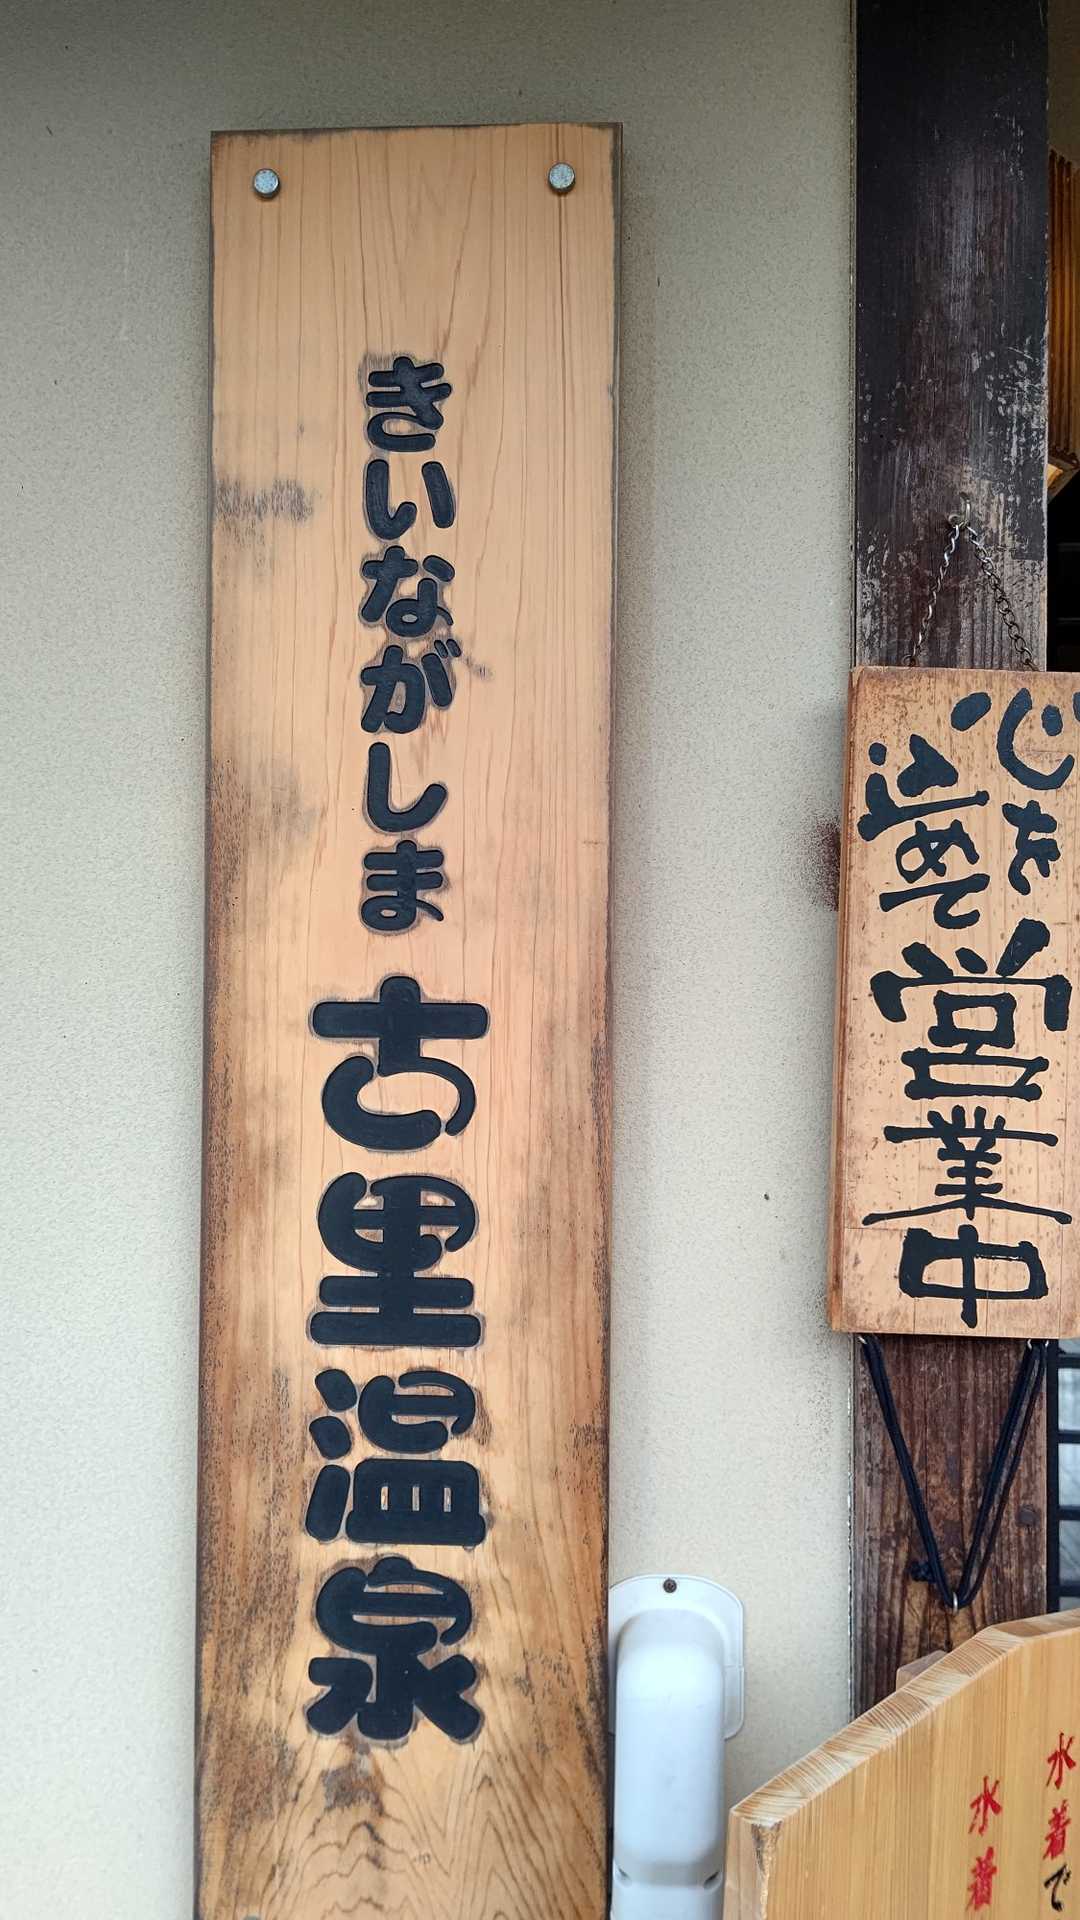 きいながしま 古里温泉
心を
込めて
営業中
水着で
水着